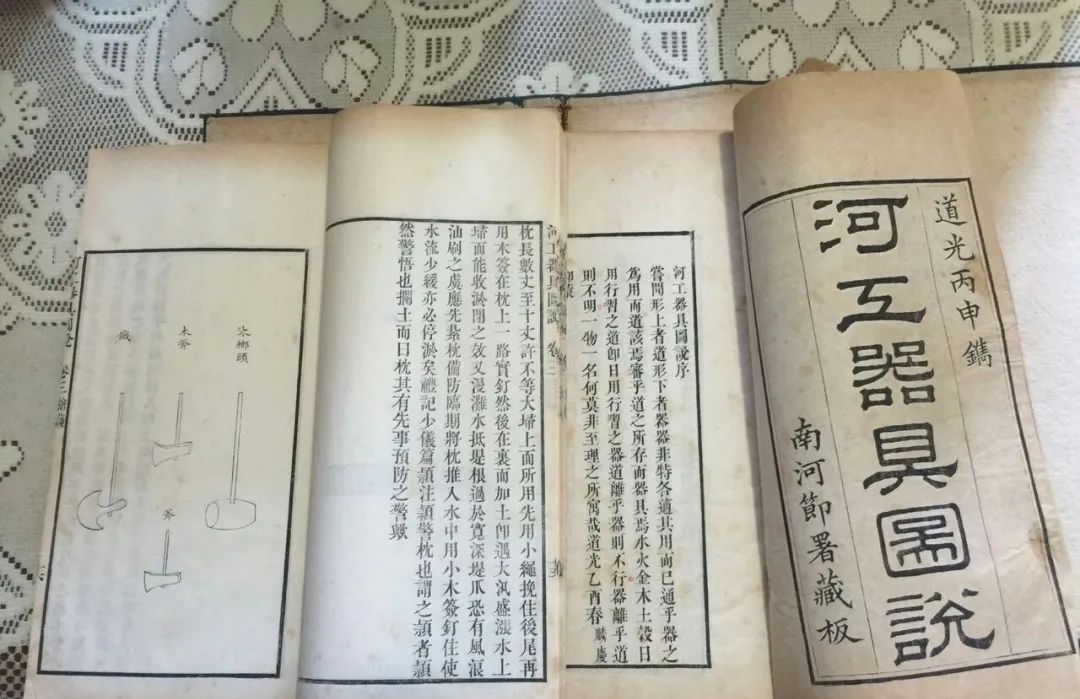 道光丙申鐫
河工器具圖說
南河節署藏板
河工器具圖說序
嘗聞形上者道形下者器器非特各適其用而已通乎器之
為用而道該焉審乎道之所存而器具焉水火金木土穀日
用行習之道卽日用行習之器道離乎器則不行器離乎道
則不明一物一名何莫非至理之所寓哉道光乙酉春 麟慶
河工器具圖說 卷二
枕長數丈至十丈許不等大埽上面所用先用小繩挽住後尾再
用木簽在枕上一路實釘然後在裏面加土卽遇大汛盛漲水上
埽面能收淤閉之效又漫灘水抵堤根過於寬深堤爪恐有風浪
汕刷之虞應先紮枕備防臨期將枕推入水中用小木簽釘住使
水流少緩亦必停淤矣禮記少儀篇熲注熲警枕也謂之熲者熲
然警悟也攔土而曰枕其有先事預防之警歟
氷榔頭
木斧
斧